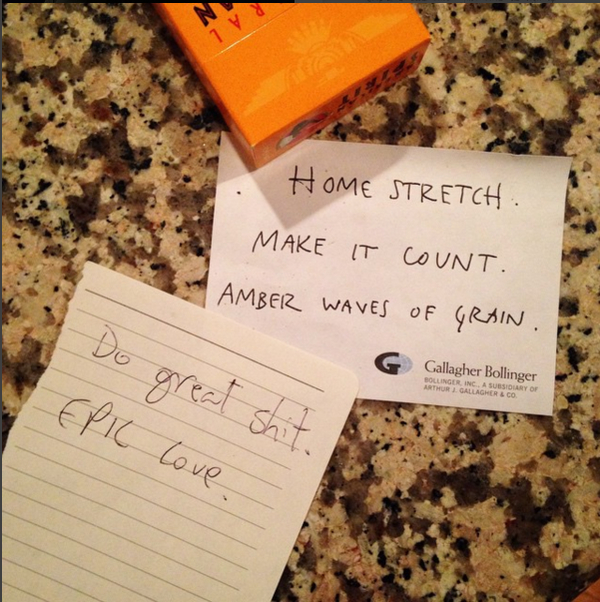 RAL
AN
SPIRIT
HOME STRETCH.
MAKE IT COUNT.
AMBER WAVES OF GRAIN.
G
Gallagher Bollinger
BOLLINGER, INC., A SUBSIDIARY OF
ARTHUR J. GALLAGHER & CO.
Do great shit.
EPIC Love.